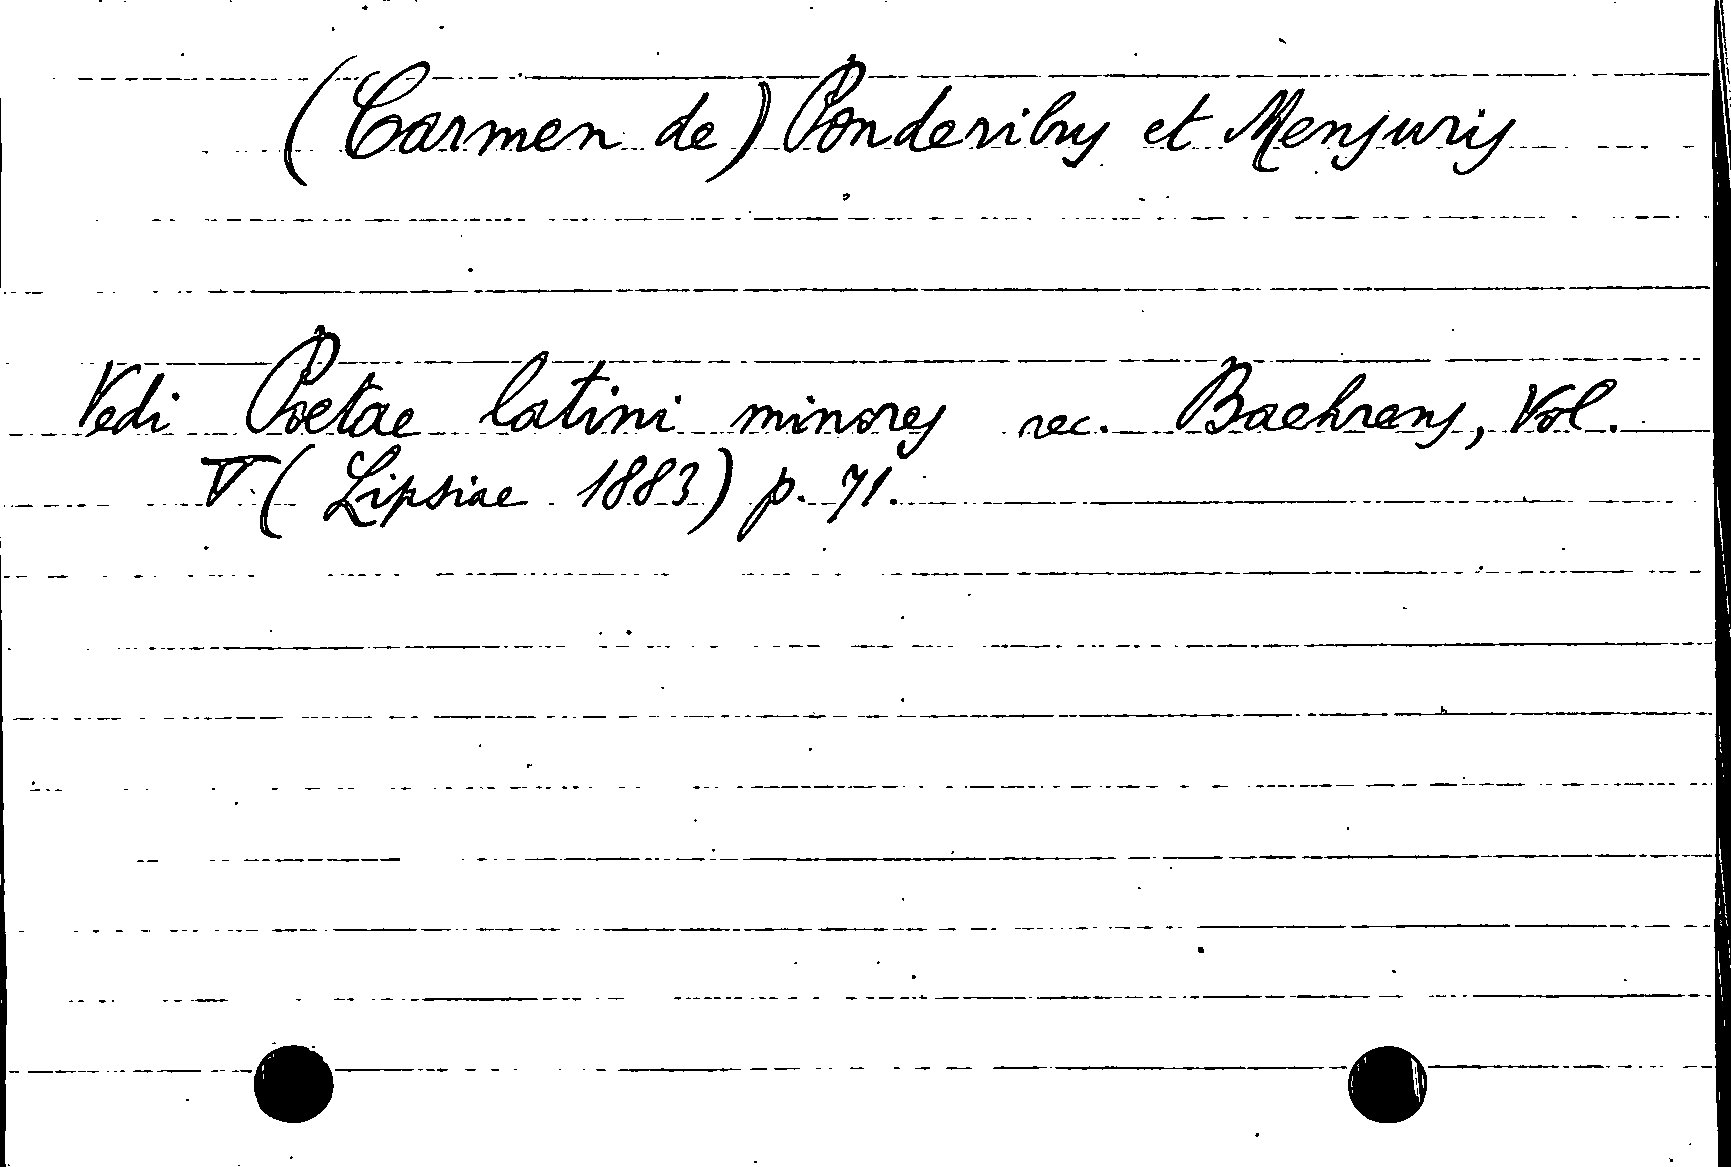 (Carmen de) Ponderibus et Mensuris
Vedi Poetae latini minores rec. Baehrens, Vol.
V (Lipsiae 1883) p. 71.